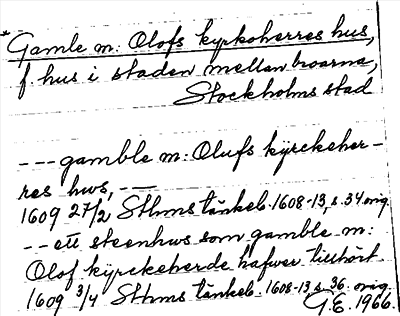 *Gamle m: Olofs kyrkoherres hus,
f. hus i staden mellan broarna,
Stockholms stad
---gamble m: Olufs kÿrckeher-
res hws, ---
1609 27/2 Sthms tänkeb. 1608-13, s. 34 orig.
-- ett steenhws som gamble m:
Olof kÿrckeherde hafwer tillhört.
1609 3/4 Sthms tänkeb. 1608-13 s. 36 orig.
G.E. 1966.